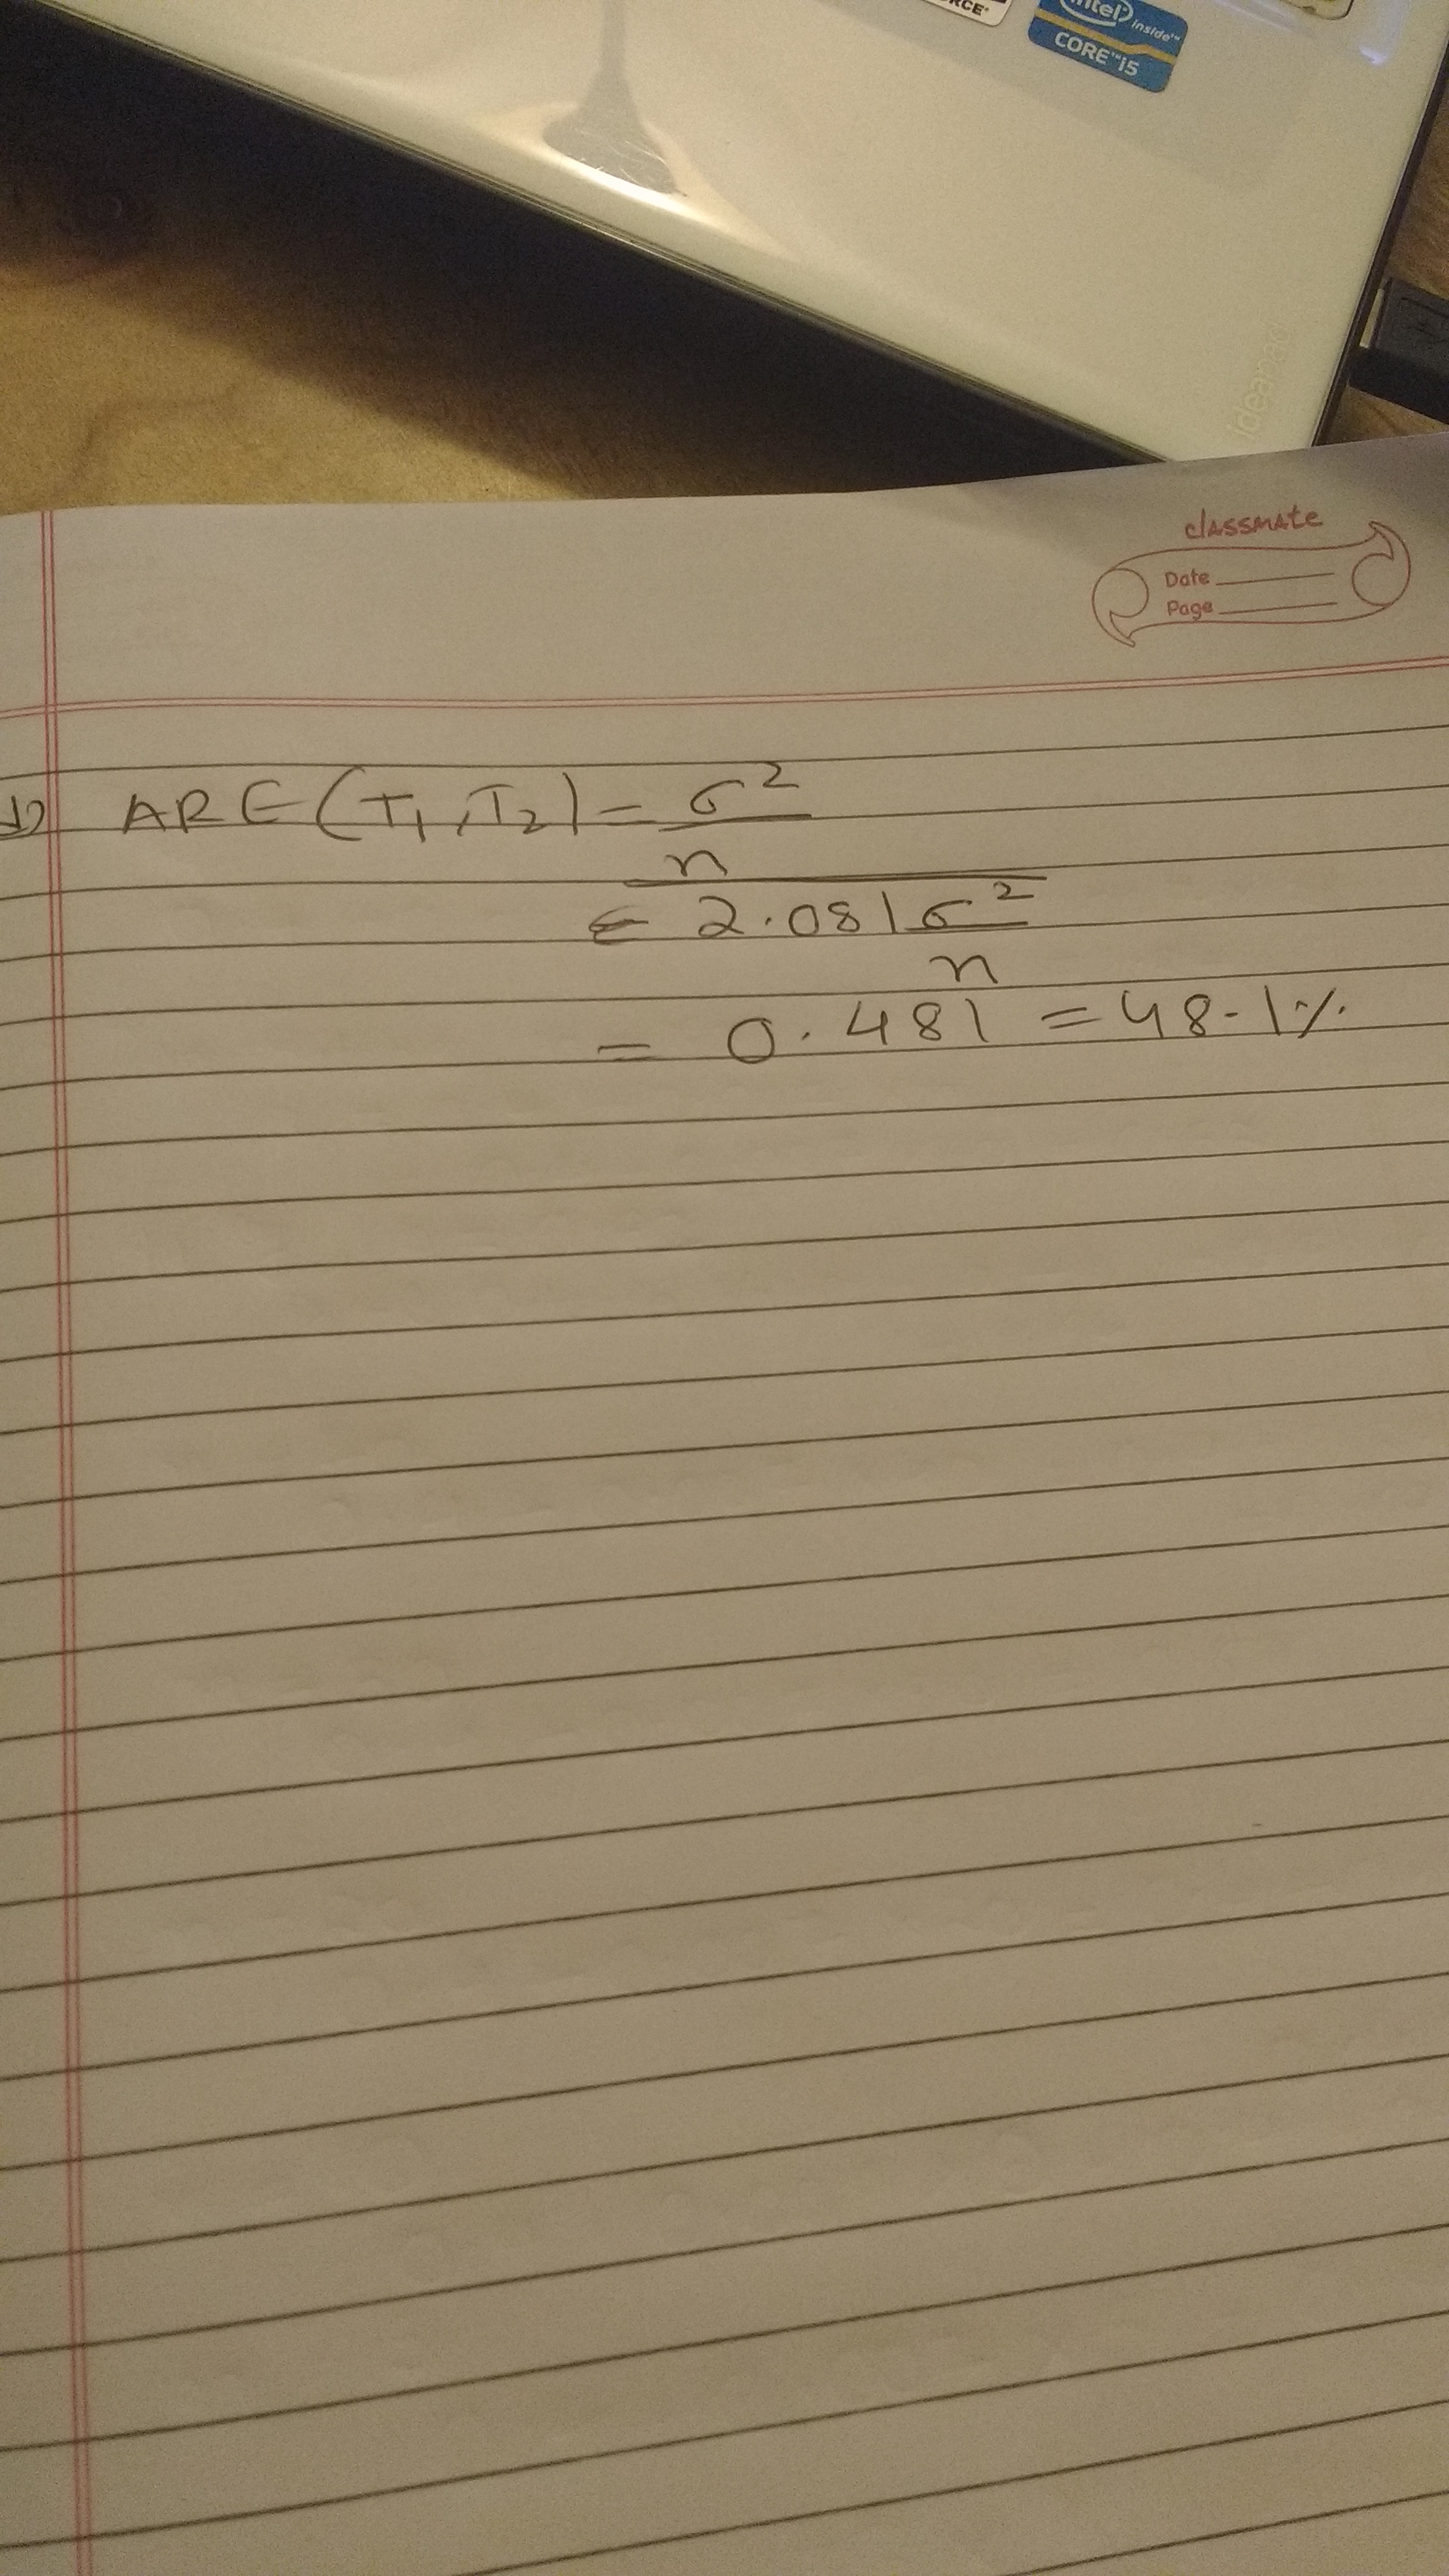 RCE
intel inside™
CORE™ i5
ideapad
classmate
Date
Page
d) ARE (T₁, T₂) = σ²
n
2.081 σ²
n
= 0.481 = 48.1%